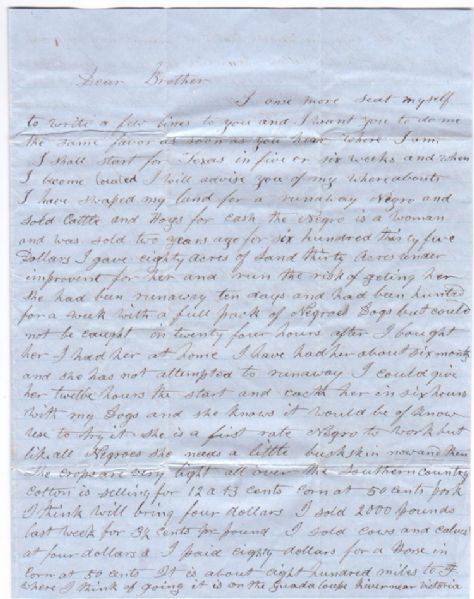 Dear Brother
I once more seat myself
to write a few lines to you and I want you to do me
the same favor as soon as you know where I am
I shall start for Texas in five or six weeks and when
I become located I will advise you of my whereabouts
I have swaped my land for a runaway Negro and
sold Cattle and Hogs for cash the Negro is a woman
and was sold two years ago for six hundred thirty five
Dollars I gave eighty acres of Land thirty Acres under
improvent for her and run the risk of geting her
She had been runaway ten days and had been hunted
for a week with a full pack of Negroe Dogs but could
not be caught in twenty four hours after I bought
her I had her at home I have had her about six months
and she has not attempted to runaway I could give
her twelve hours the start and catch her in six hours
with my Dogs and she knows it would be of know
use to try it she is a first rate Negro to work but
like all Negroes she needs a little buckskin now and then
The crops are very light all over the Southern country
Cotton is selling for 12 a 13 cents Corn at 50 cents pork
I think will bring four dollars I sold 2000 pounds
last week for 3½ cents pr pound I sold cows and calves
at four dollars & I paid eighty dollars for a Horse in
Corn at 50 cents It is about eight hundred miles to
where I think of going it is on the Guadaloupe River near victoria